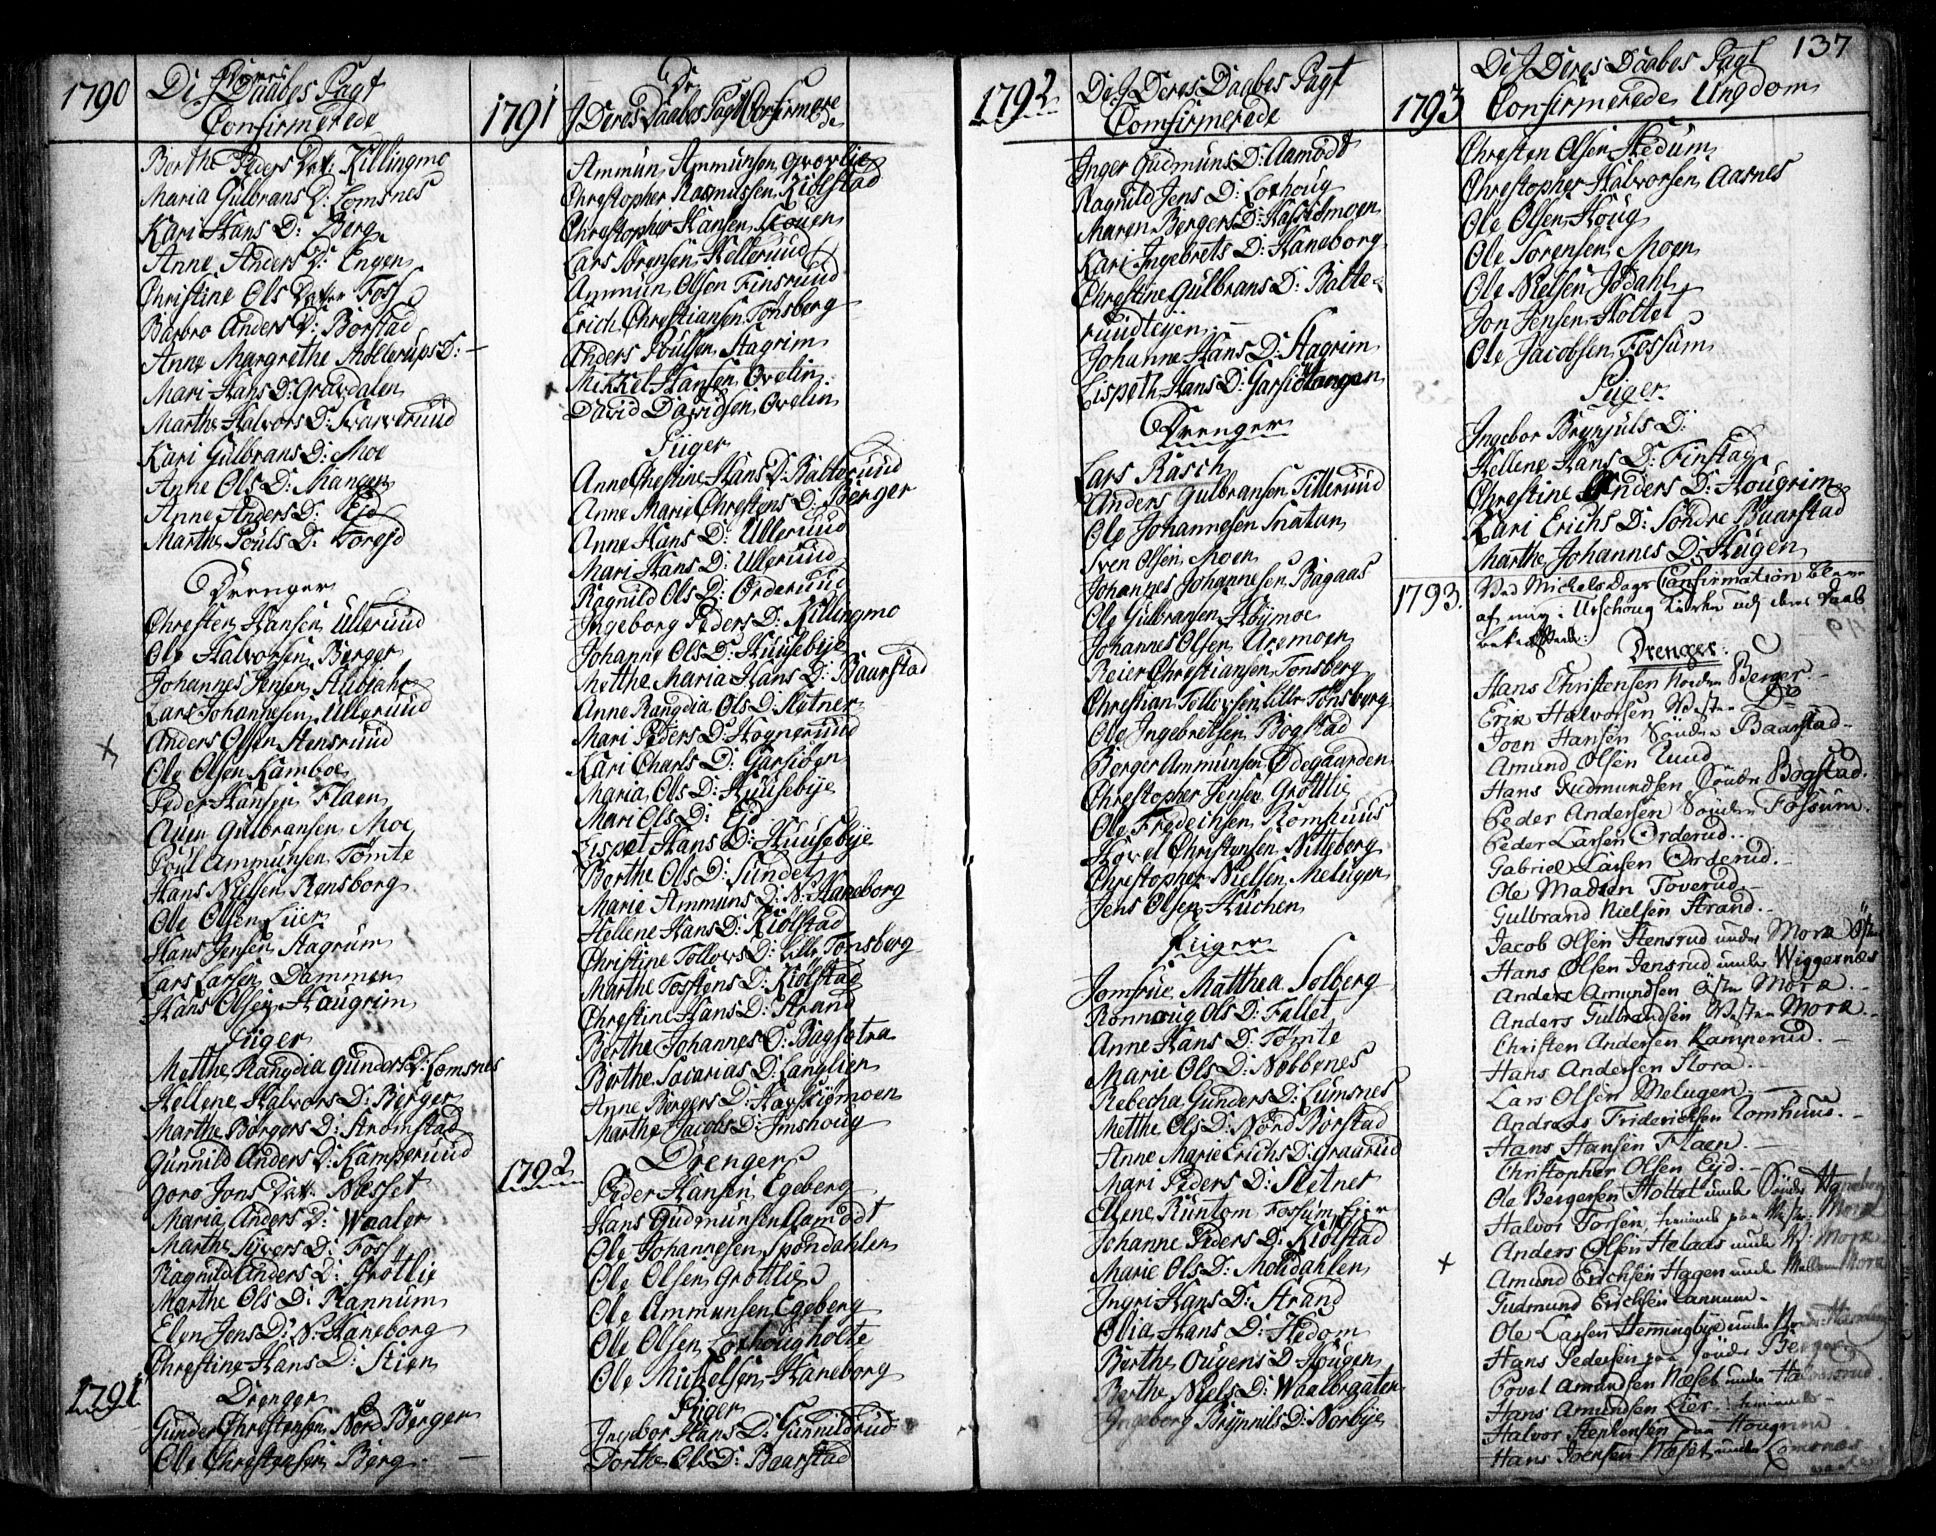 1790
Di J Deres
Daabes Pagt
Confirmerede
Berthe Peders Dat: Killingmo
Maria Gulbrans D: Lomsnes
Kari Hans D: Berg
Anne Anders D: Engen
Christine Ols Datter Foss
Barbro Anders D: Borstad
Anne Margrethe Mollerups D: —
Mari Hans D: Gravdalen
Marthe Halvors D: Skarverund
Kari Gulbrans D: Moe
Anne Ols D: Mangen
Anne Anders D: Eid
Marthe Pouls D:
Drenger
Christen Hansen Ullerund
Ole Halvorsen Berger
Johannes Jensen
Lars Johannesen Ullerund
Anders Olsen Stensrund
Ole Olsen Kamboe
Peder Hansen Flaen
Auen Gulbransen Moe
Poul Ammunsen Tomte
Hans Nielsen Rensborg
Ole Olsen Lier
Hans Jensen Hagrum
Lars Larsen Dammen
Hans Olsen Haugrim
Piger
Mette Rangdia Gunders D: Lomsnes
Hellene Halvors D: Berger
Marthe Borgers D: Stromstad
Gunnild Anders D: Kamperuud
Goro Jons Dat: Næsset
Maria Anders D: Waaler
Marthe Syvers D: Foss
Ragnild Anders D: Grøttlie
Marthe Ols D: Rannum
Elen Jens D: N: Haneborg
Chrestine Hans D: Stien
1791
Drenger
Gunder Chrestensen Nord Berger
Ole Chrestensen Berg —
1791
De
J Deres Daabes Pagt Confirmerede
Ammun Ammunsen
Chrestopher Rasmussen Kiølstad
Chrestopher Hansen Skouen
Lars Sørensen Helleruud
Ammun Olsen Finsruud
Erich Christiansen Tønsberg
Anders Poulsen Hagrim
Mikkel Hansen Ovelin
David Davidsen Ovelin
Piger
Anne Chestine Hans D: Balteruud
Anne Marie Chrestens D: Berger
Anne Hans D: Ulleruud
Mari Hans D: Ulleruud
Ragnild Ols D: Orderuud
Ingeborg Peders D: Killingmo
Johanne Ols D: Huusebye
Methe Maria Hans D: Baarstad
Anne Rangdia Ols D: Sletner
Mari Peders D: Hogneruud
Kari Charls D: Garsiøen
Maria Ols D: Huusebye
Mari Ols D: Eid
Lispet Hans D: Huusebye
Berthe Ols D: Sundet
Marie Ammuns D: N: Haneborg
Hellene Hans D: Kiølstad
Christine Tollovs D: Lille Tonsberg
Marthe Tostens D: Kiølstad
Chrestine Hans D: Strand
Berthe Johannes D: Bagsetra
Berthe Socarias D: Langlien
Anne Bergers D: Havskiømoen
Marthe Jacobs D: Imshoug
1792
Drenger
Peder Hansen Egeberg
Hans Gudmunsen Aamodt
Ole Johannesen Spøndahlen
Ole Olsen Grøtlie
Ole Ammunsen Egeberg
Ole Olsen Loshougholte
Ole Mickelsen Haneborg
Piger
Ingebor Hans D: Gunnildrud
Dorthe Ols D: Baarstad
1792
De J Deres Daabes Pagt
Comfirmerede
Inger Gudmuns D: Aamodt
Ragnild Jens D: Loshoug
Maren Bergers D:
Kari Ingebrets D: Haneborg
Chrestine Gulbrans D: Balte-
ruudteijen —
Johanne Hans D: Hagrim
Lispeth Hans D: Garsiøtangen
Drenger
Lars Rasch
Anders Gulbransen Tilleruud
Ole Johannesen Snatun
Sven Olsen Moen
Johannes Johannesen Bagaas
Ole Gulbransen Høymoe
Johannes Olsen Aremoen
Reier Christiansen Tonsberg
Christian Tollovsen Lille Tønsberg
Ole Ingebretsen Bogstad
Berger Ammunsen Ødegaarden
Chrestopher Jensen Grøttlie
Ole Fredrichsen Romhuus
Hovel Christensen Nitteberg
Chrestopher Nielsen Melugen
Jens Olsen Kuchen
Piger
Jomfrue Matthea Solberg
Rønnoug Ols D: Fallet
Anne Hans D: Tømte
Marie Ols D: Nebbenes
Rebecha Gunders D: Lumsnes
Methe Ols D: Nord Borstad
Anne Marie Erichs D: Graarud
Mari Peders D: Sletner
Ellene Runtom Fossum Eier
Johanne Peders D: Kiolstad
Marie Ols D: Moudahlen
Ingri Hans D: Strand
Olia Hans D: Hedom
Berthe Ougens D: Hougen
Berthe Niels D: Waalergaten
Ingeborg Brynnils D: Norbye
137
1793
De J Deres Daabes Pagt
Confirmerede Ungdom
Chresten Olsen Hedum
Chrestopher Halvorsen Aarnes
Ole Olsen Houg
Ole Sorensen Moen
Ole Nielsen Jødahl
Jon Jensen Holtet
Ole Jacobsen Fossum
Piger
Ingebor Brynjuls D:
Hellene Hans D: Finstad
Chrestine Anders D: Hougrim
Kari Erichs D: Søndre Baarstad
Marthe Johannes D: Hugen
1793.
Ved Michels Dags Confirmation bleve
af mig i Urschoug Kirke udj deres Daab
bekræftede:
Drenger:
Hans Christensen Norden Berger. —
Erik Halvorsen Westen Do
Joen Hansen Sønden Baarstad —
Amund Olsen Lund
Hans Gudmundsen Sønden Bogstad.
Peder Andersen Sønden Fossum.
Peder Larsen Orderud. —
Gabriel Larsen Orderud. —
Ole Madsen Toverud —
Gulbrand Nielsen Strand. —
Jacob Olsen Stensrud under Mora Østen
Hans Olsen Jensrud under Wiggernæs
Anders Amundsen Østen Mora. —
Anders Gulbrandsen Westen Mora. —
Christen Andersen Kamperud. —
Hans Andersen Flora. —
Lars Olsen Melugen —
Andreas Friderichsen Romhuus. —
Hans Hansen Flaen —
Christopher Olsen Eyd. —
Ole Bergersen Holtet under Sønder Haneborg
Halvor Torsen, tienende paa Westen Mora
Anders Olsen Helaas under W: Mora
Amund Erichsen Hagen under Mellem Mora
Gudmund Erichsen Rannum —
Ole Larsen Hemingbye under
Hans Pedersen paa Sønder Berger
Povel Amundsen Næset under
Hans Amundsen Lier
Halvor Stephensen paa
Hans Joensen Næset under Lomsnæs